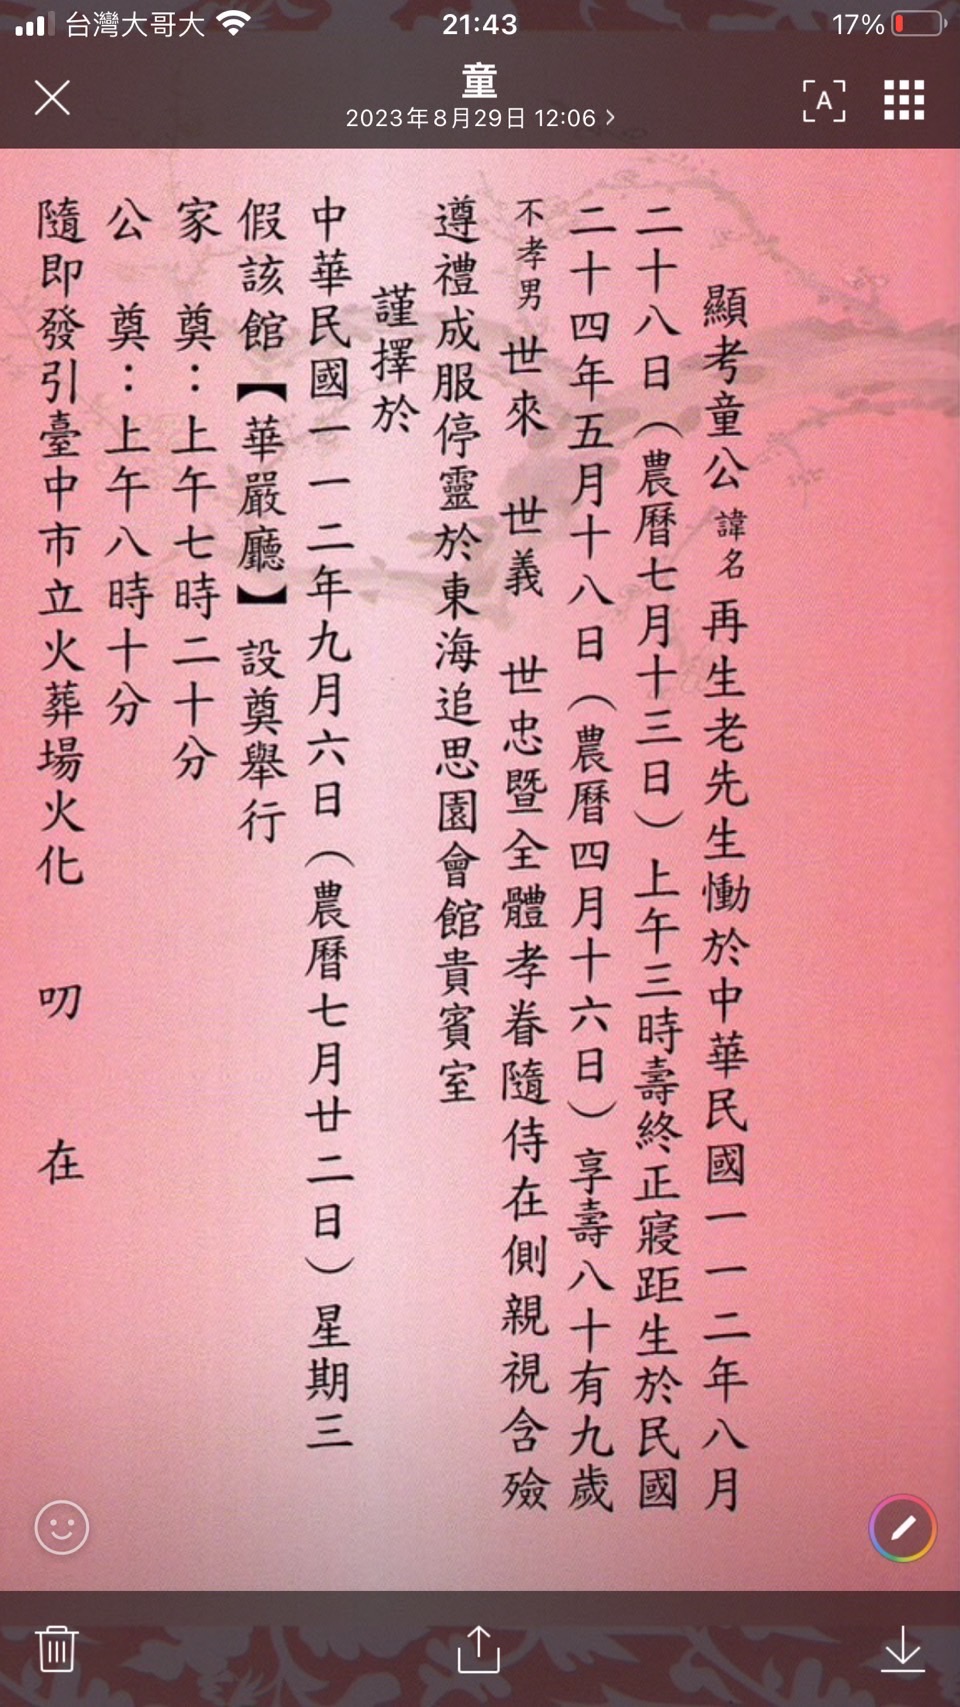 台灣大哥大
21:43
17%
童
2023年8月29日 12:06
A
顯考童公諱名再生老先生慟於中華民國一一二年八月
二十八日（農曆七月十三日）上午三時壽終正寢距生於民國
二十四年五月十八日（農曆四月十六日）享壽八十有九歲
不孝男 世來 世義 世忠暨全體孝眷隨侍在側親視含殮
遵禮成服停靈於東海追思園會館貴賓室
謹擇於
中華民國一一二年九月六日（農曆七月廿二日）星期三
假該館【華嚴廳】設奠舉行
家 奠：上午七時二十分
公 奠：上午八時十分
隨即發引臺中市立火葬場火化 叨 在